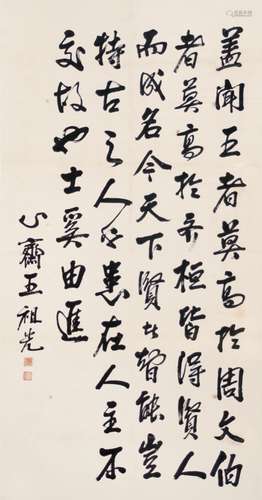 盖闻王者莫高於周文伯
者莫高於齐桓皆得贤人
而成名今天下贤者智能岂
特古之人乎患在人主不
交故也士奚由进
心斋王祖光